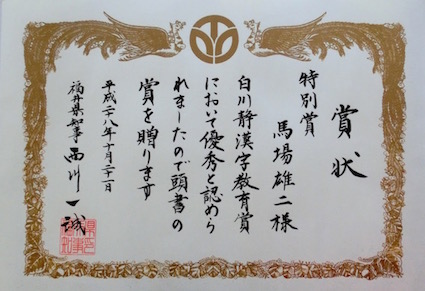 賞状
特別賞
馬場雄二様
白川静漢字教育賞
において優秀と認めら
れましたので頭書の
賞を贈ります
平成二八年十月二十一日
福井県知事 西川一誠